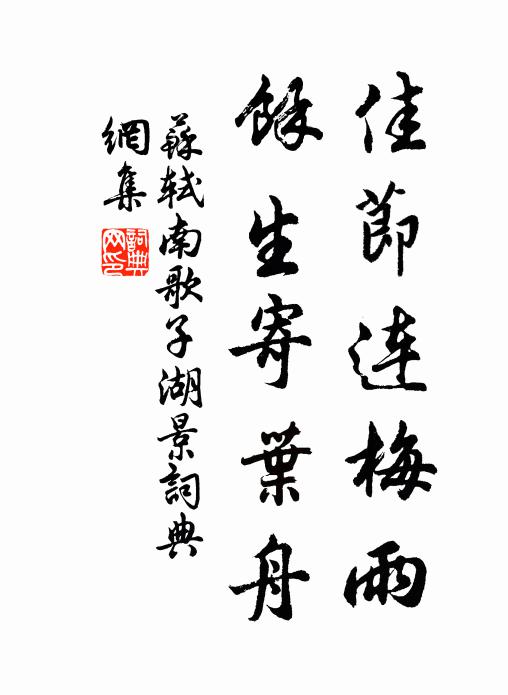 佳節連梅雨
餘生寄葉舟
蘇軾南歌子湖景詞典
網集
詞典網印